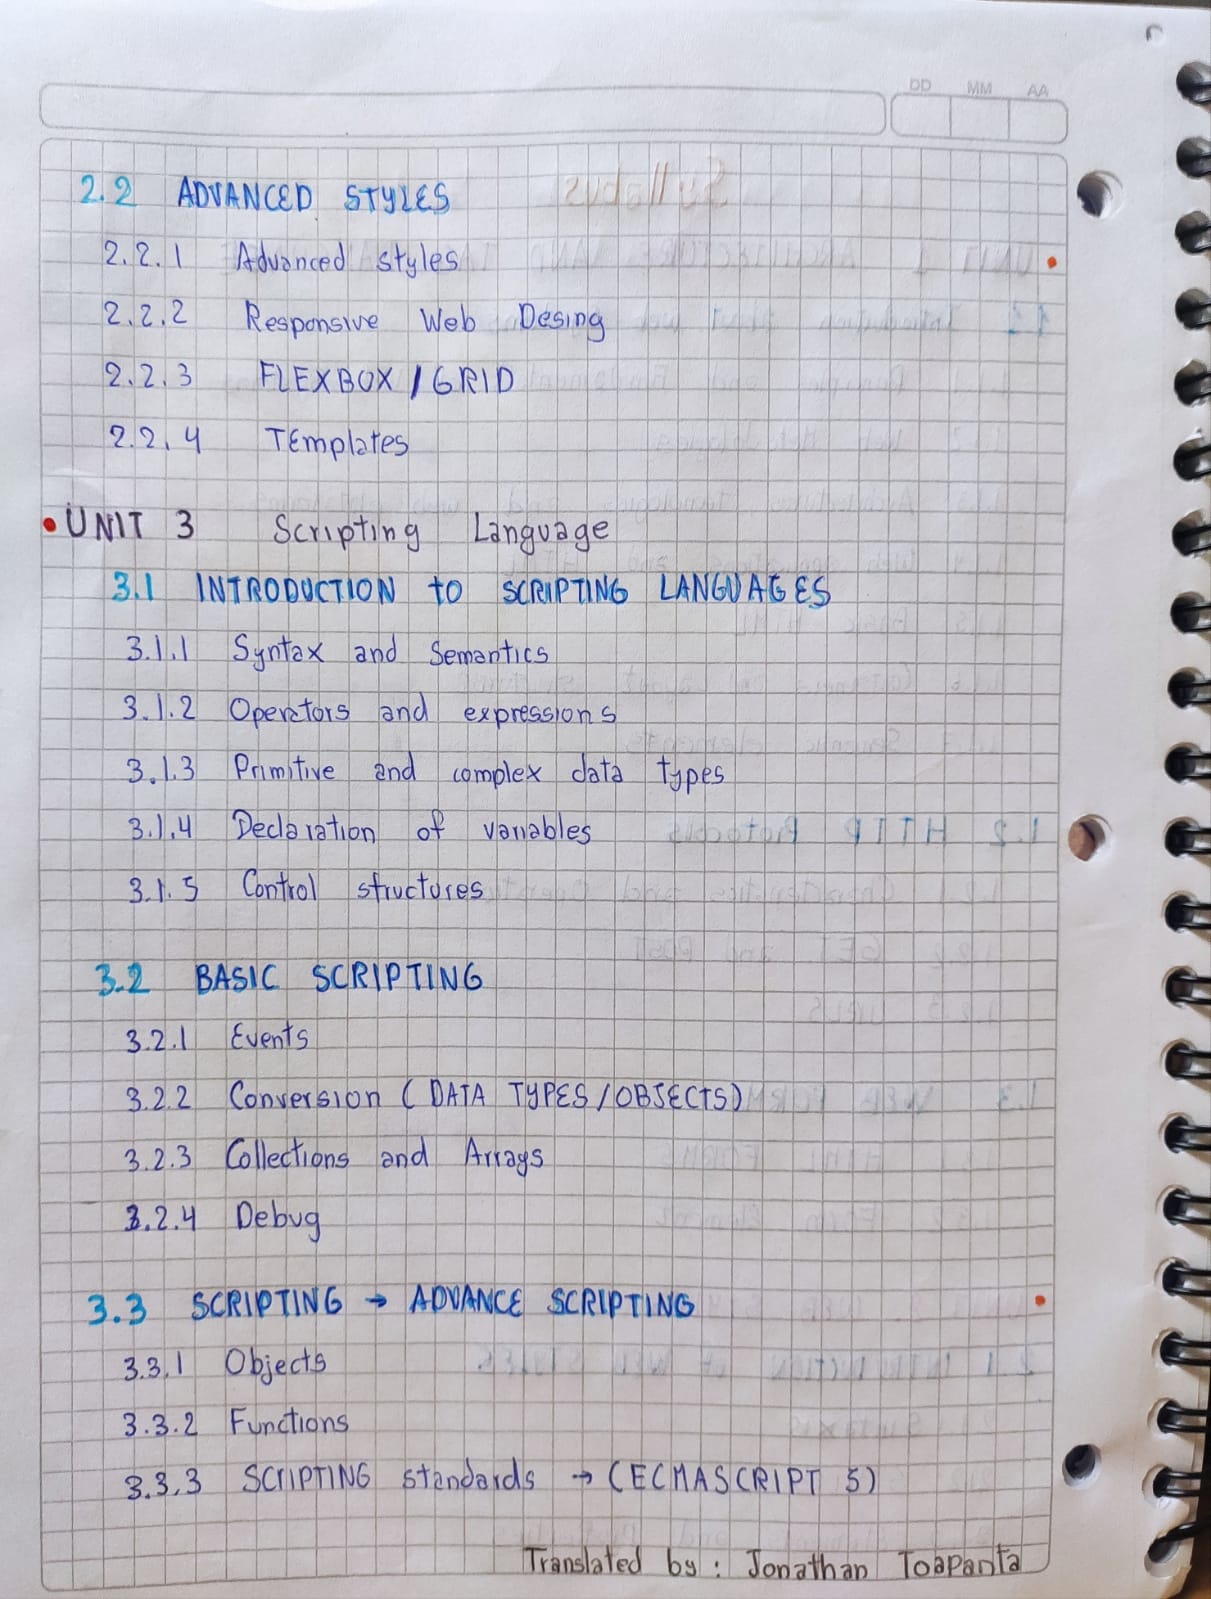 DD MM AA
2.2 ADVANCED STYLES
2.2.1 Advanced styles
2.2.2 Responsive Web Desing
2.2.3 FLEXBOX / GRID
2.2.4 TEmplates
• UNIT 3 Scripting Language
3.1 INTRODUCTION to SCRIPTING LANGUAGES
3.1.1 Syntax and Semantics
3.1.2 Operators and expressions
3.1.3 Primitive and complex data types
3.1.4 Declaration of variables
3.1.5 Control structures
3.2 BASIC SCRIPTING
3.2.1 Events
3.2.2 Conversion (DATA TYPES/OBJECTS)
3.2.3 Collections and Arrays
3.2.4 Debug
3.3 SCRIPTING → ADVANCE SCRIPTING
3.3.1 Objects
3.3.2 Functions
3.3.3 SCRIPTING standards → (ECMASCRIPT 5)
Translated by: Jonathan Toapanta